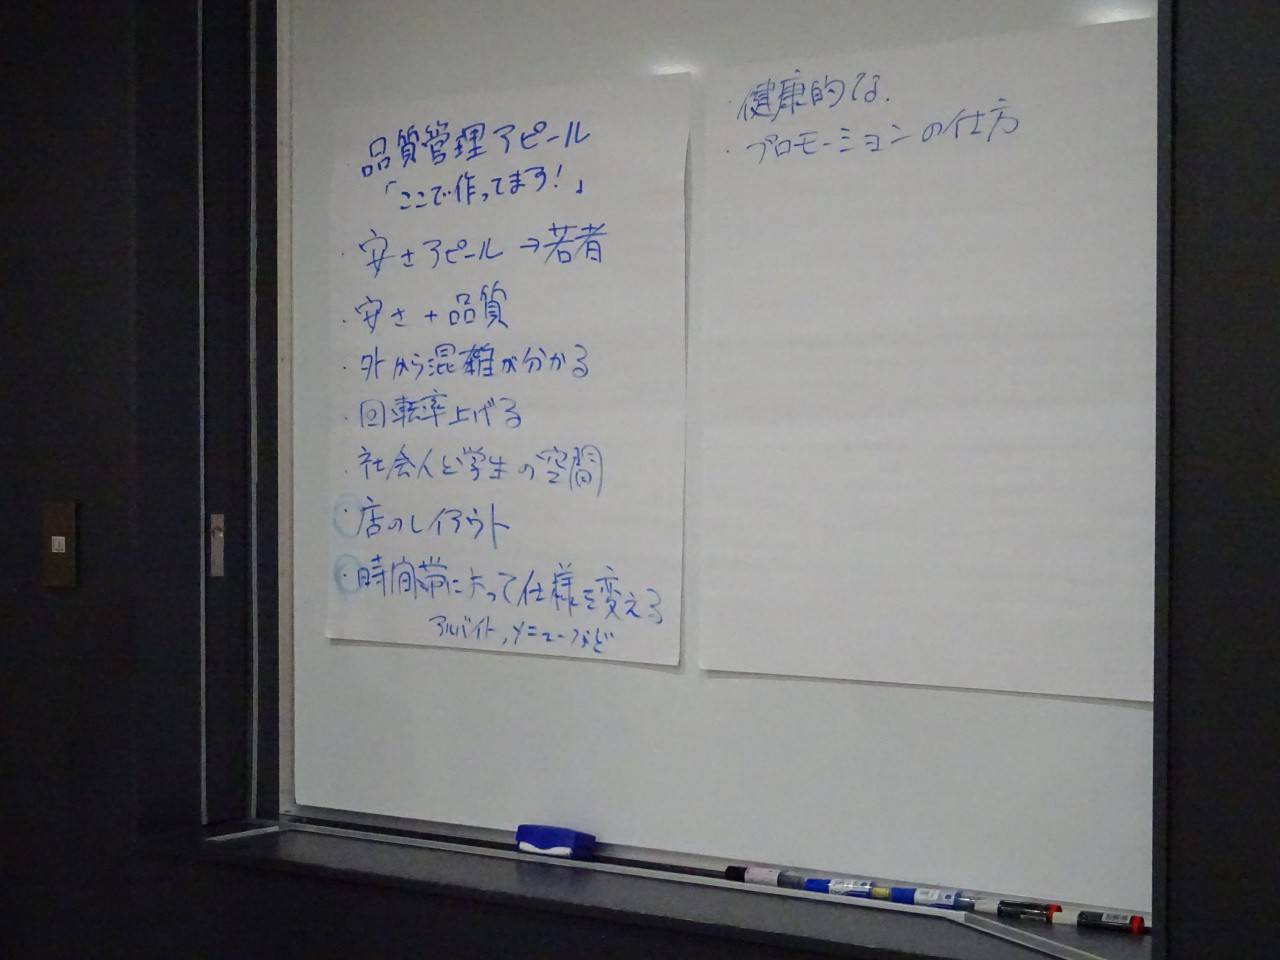 ・品質管理アピール
「ここで作ってます!」
・安さアピール→若者
・安さ+品質
・外から混雑が分かる
・回転率上げる
・社会人と学生の空間
・店のレイアウト
・時間帯によって仕様を変える
アルバイト,メニューなど
・健康的な.
・プロモーションの仕方